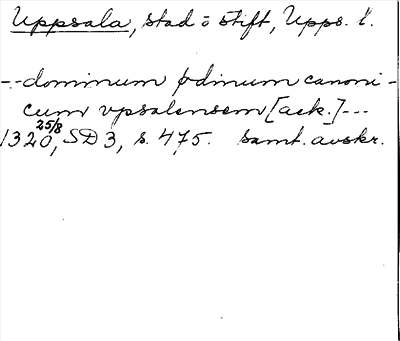 Uppsala, stad o stift, Upps. l.
--dominum pdinum canoni-
cum vpsalensem [ack.]---
25/8
1320, SD 3, s. 475. samt. avskr.